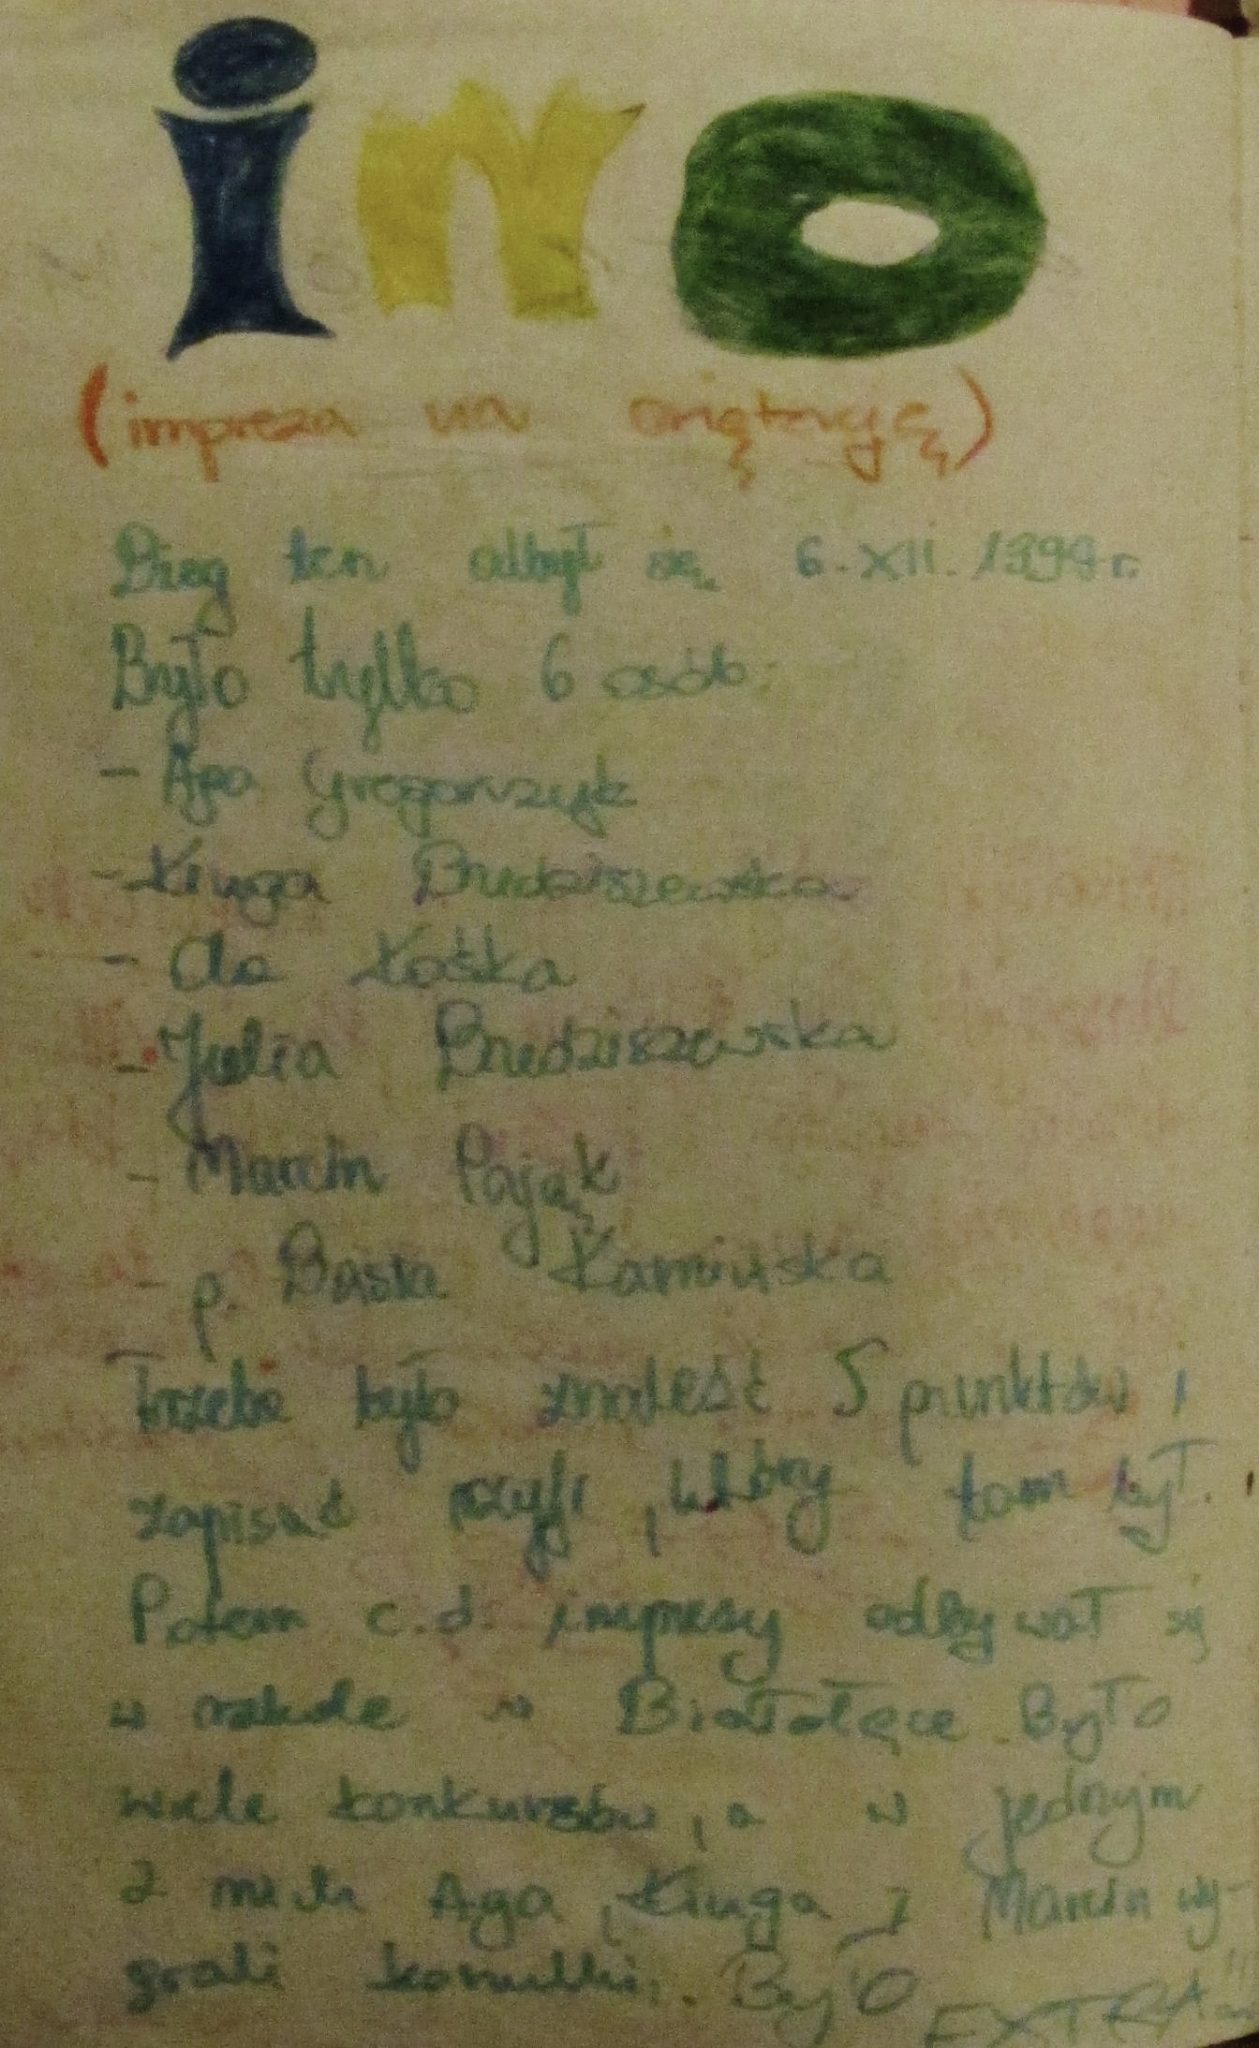 ino
(impreza na oriętację)
Bieg ten odbył się 6.XII.1994r.
Było tylko 6 osób:
- Aga Gregorczyk
- Kinga Brudziszewska
- Ola Kośka
- Julia Brudziszewska
- Marcin Pająk
- p. Basia Kamińska
Trzeba było znaleść 5 punktów i
zapisać szyfr, który tam był.
Potem c.d. imprezy odbywał się
w szkole w Białołęce. Było
wiele konkursów, a w jednym
z nich Aga, Kinga i Marcin wy-
grali koszulki. Było EXTRA!!!